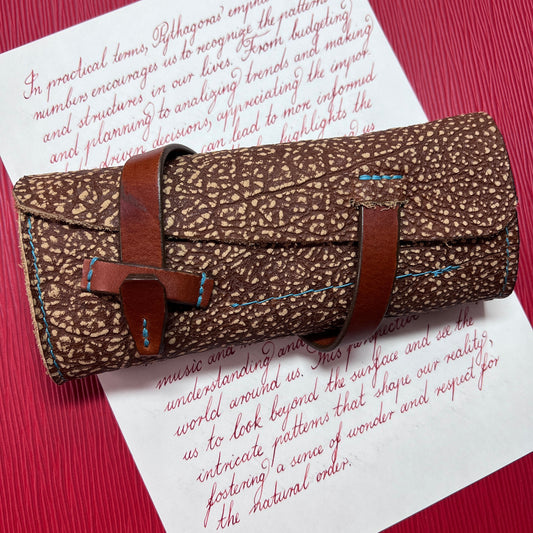 In practical terms, Pythagoras' emph
numbers encourages us to recognize the patterns
and structures in our lives. From budgeting
and planning to analizing trends and making
driven decisions, appreciating the impor
can lead to more informed
highlights the
us
music and
understanding an
world around us. This perspective
us to look beyond the surface and see the
intricate patterns that shape our reality,
fostering a sence of wonder and respect for
the natural order.